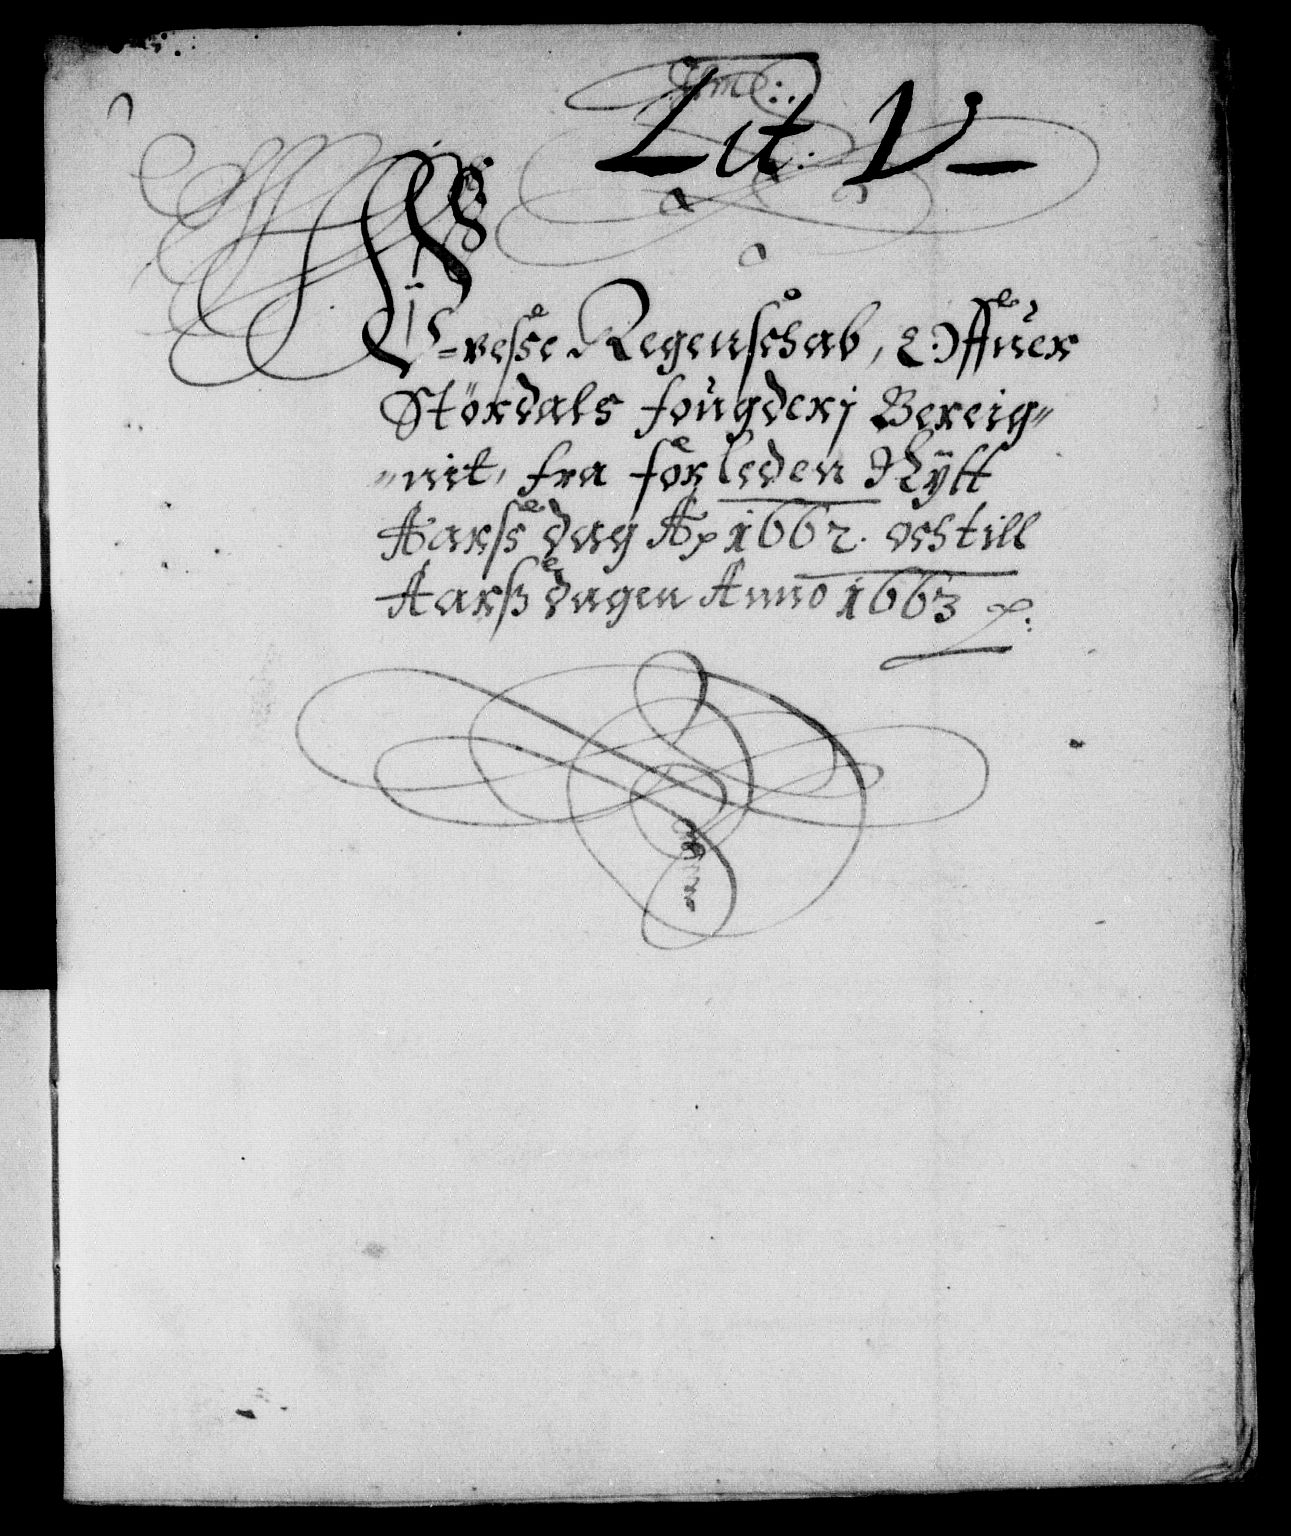 Lit: V
Wisse Regenschab, Offuer
Stördals fougderj Bereig=
=nit, fra forleden Nÿtt
Aarss dag Ao 1662. och till
Aarsz dagen Anno 1663